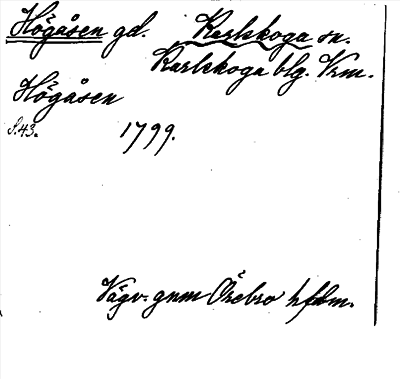 Högåsen gd. Karlskoga sn.
Karlskoga blg. Vrm.
Högåsen
S.43. 1799.
Vägv. gnm Örebro